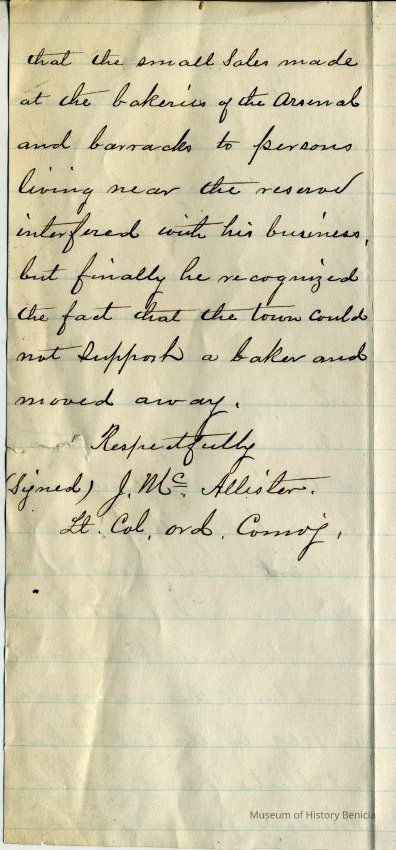 that the small sales made
at the bakeries of the Arsenal
and barracks to persons
living near the reserve
interfered with his business,
but finally he recognized
the fact that the town could
not support a baker and
moved away.
Respectfully
(Signed) J. Mc. Allister.
Lt. Col. ord. Comd'g.
Museum of History Benicia